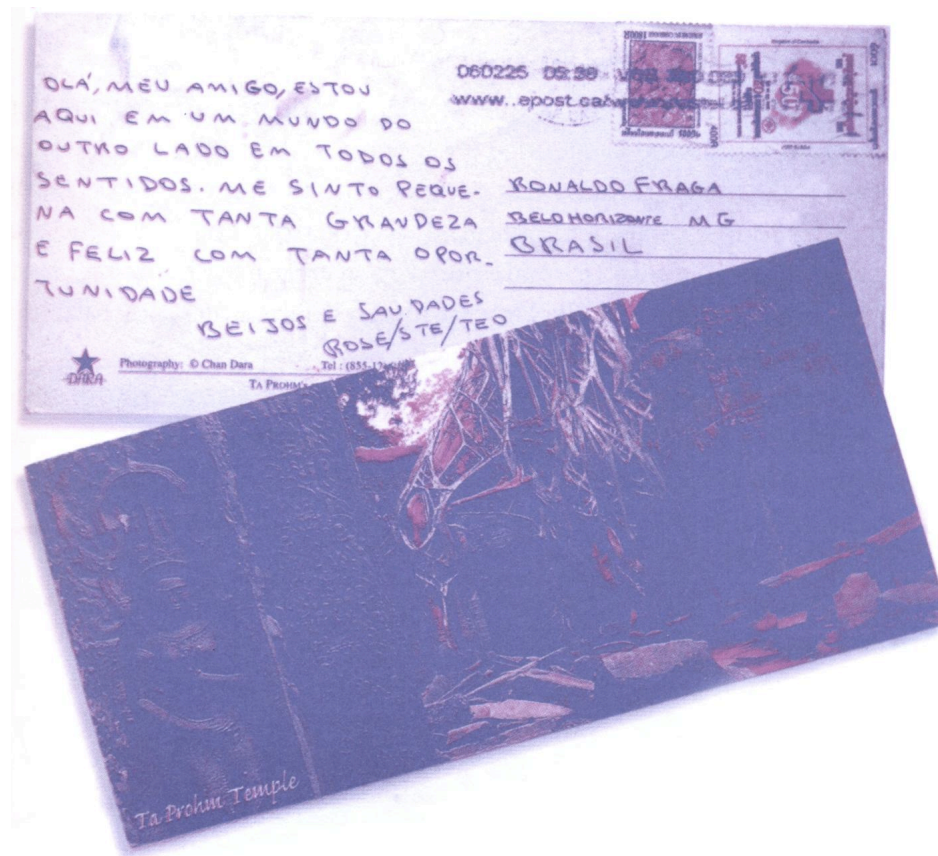 OLÁ, MEU AMIGO, ESTOU
AQUI EM UM MUNDO DO
OUTRO LADO EM TODOS OS
SENTIDOS. ME SINTO PEQUE-
NA COM TANTA GRANDEZA
E FELIZ COM TANTA OPOR-
TUNIDADE
BEIJOS E SAUDADES
ROSE/STE/TEO
060225
www..epost.ca
RONALDO FRAGA
BELO HORIZONTE MG
BRASIL
DARA
Photography: © Chan Dara
Tel : (855-
TA PROHM'S
Ta Prohm Temple